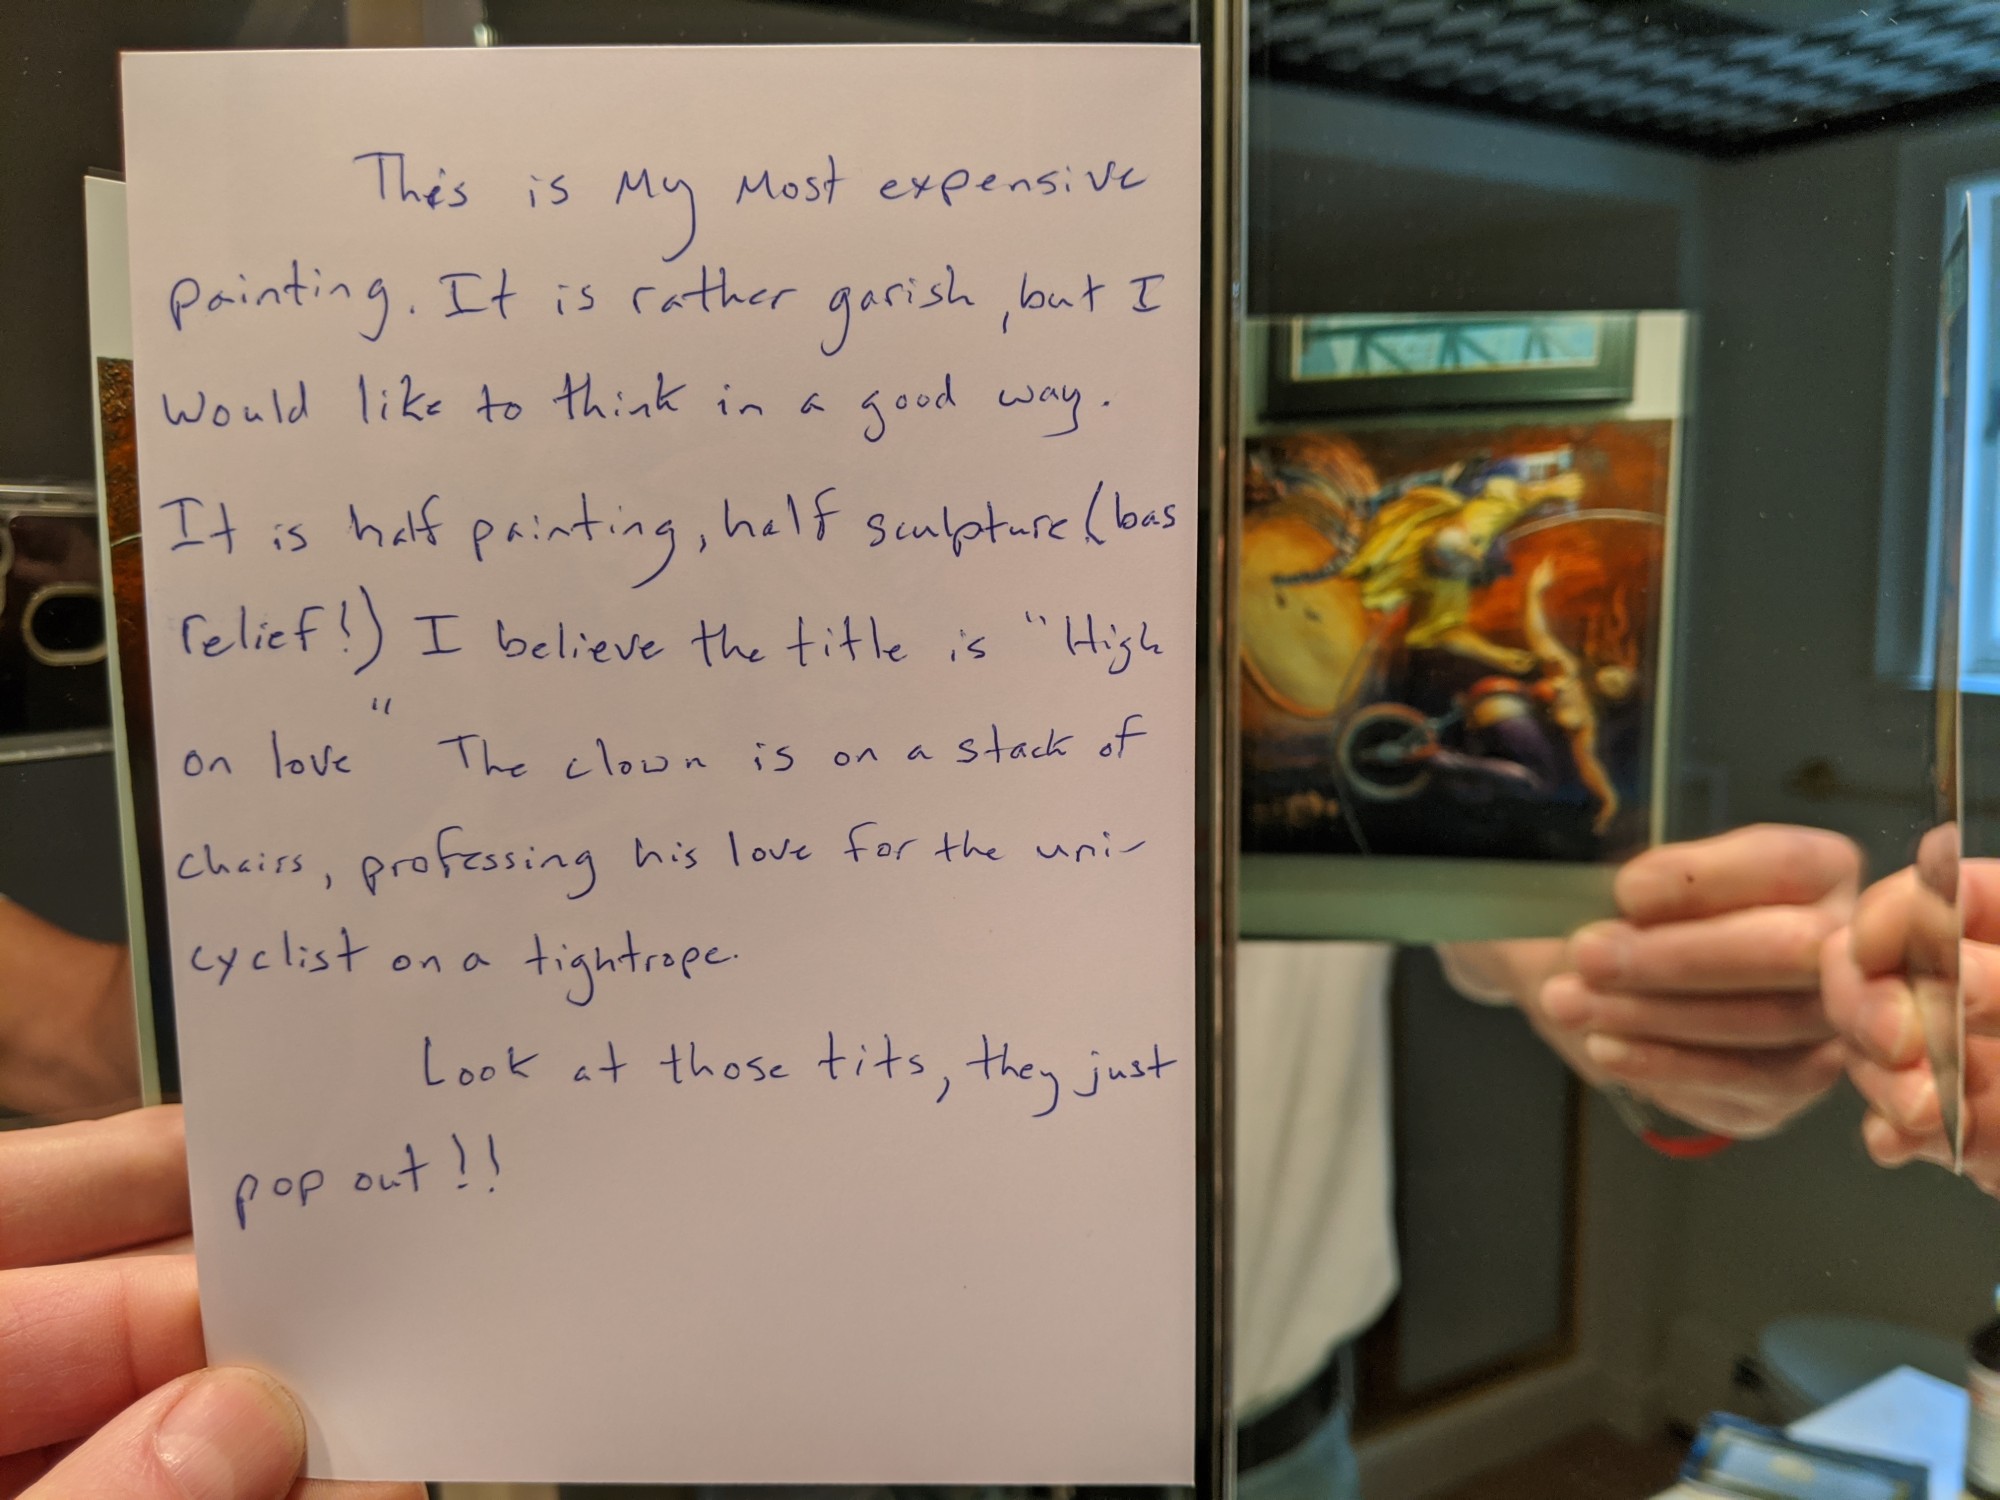 This is My Most expensive
painting. It is rather garish, but I
would like to think in a good way.
It is half painting, half sculpture (bas
relief!) I believe the title is "High
on love" The clown is on a stack of
chairs, professing his love for the uni-
cyclist on a tightrope.
Look at those tits, they just
pop out!!